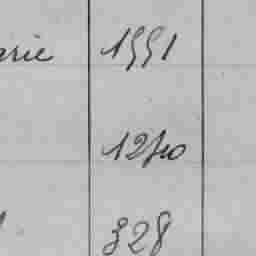 arie 1551
1240
328